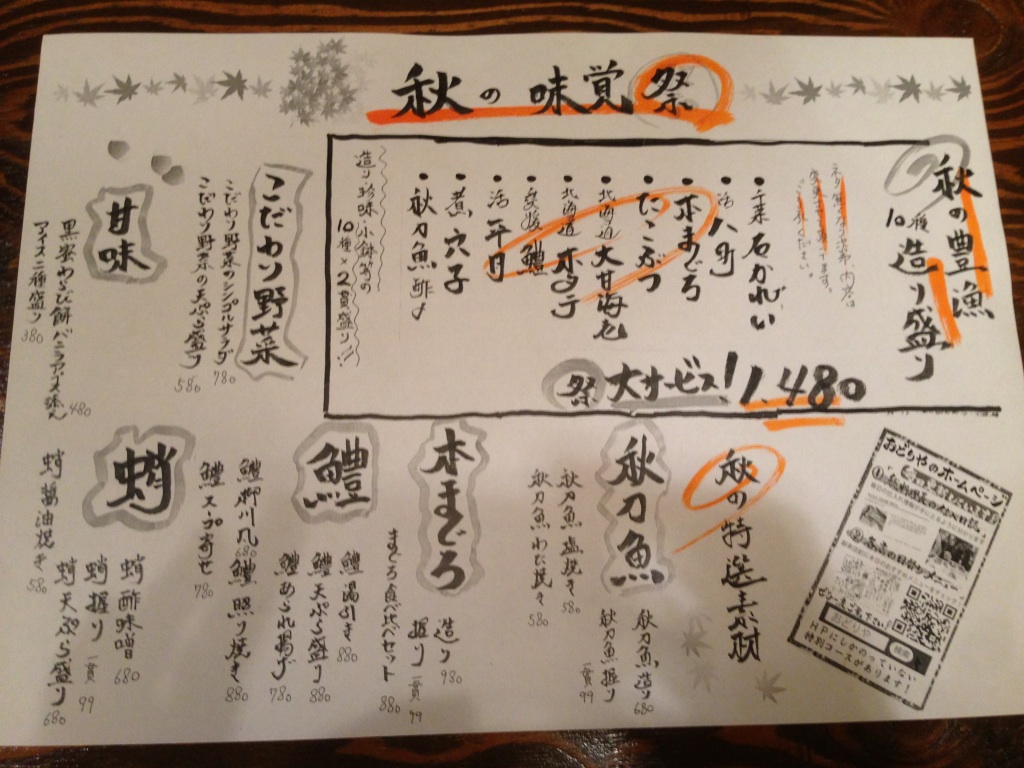 秋の味覚祭
秋の豊漁
10種造り盛り
・千葉石かれい
・活八町
・本まぐろ
・たこぶつ
・北海道大甘海老
・北海道ホタテ
・愛媛鱧
・活平目
・煮穴子
・秋刀魚酢〆
造り珍味小鉢等の
10種×2貫盛り!!
祭大サービス!1,480
こだわり野菜
こだわり野菜のシンプルサラダ 780
こだわり野菜の天ぷら盛り 580
甘味
黒蜜わらび餅バニラアイス添え 480
アイス三種盛り 380
秋の特選素材
秋刀魚
秋刀魚造り 680
秋刀魚握り 一貫99
秋刀魚塩焼き 580
秋刀魚わた焼き 580
本まぐろ
造り 980
握り 一貫99
まぐろ食べ比べセット 880
鱧
鱧湯引き 880
鱧天ぷら盛り 880
鱧あられ揚げ 780
鱧柳川風 680
鱧照り焼き 880
鱧スープ寄せ 780
蛸
蛸酢味噌 680
蛸握り 一貫99
蛸天ぷら盛り 680
蛸醤油焼き 580
おどりやのホームページ
おどりや
検索
HPにしかのっていない
特別コースがあります!